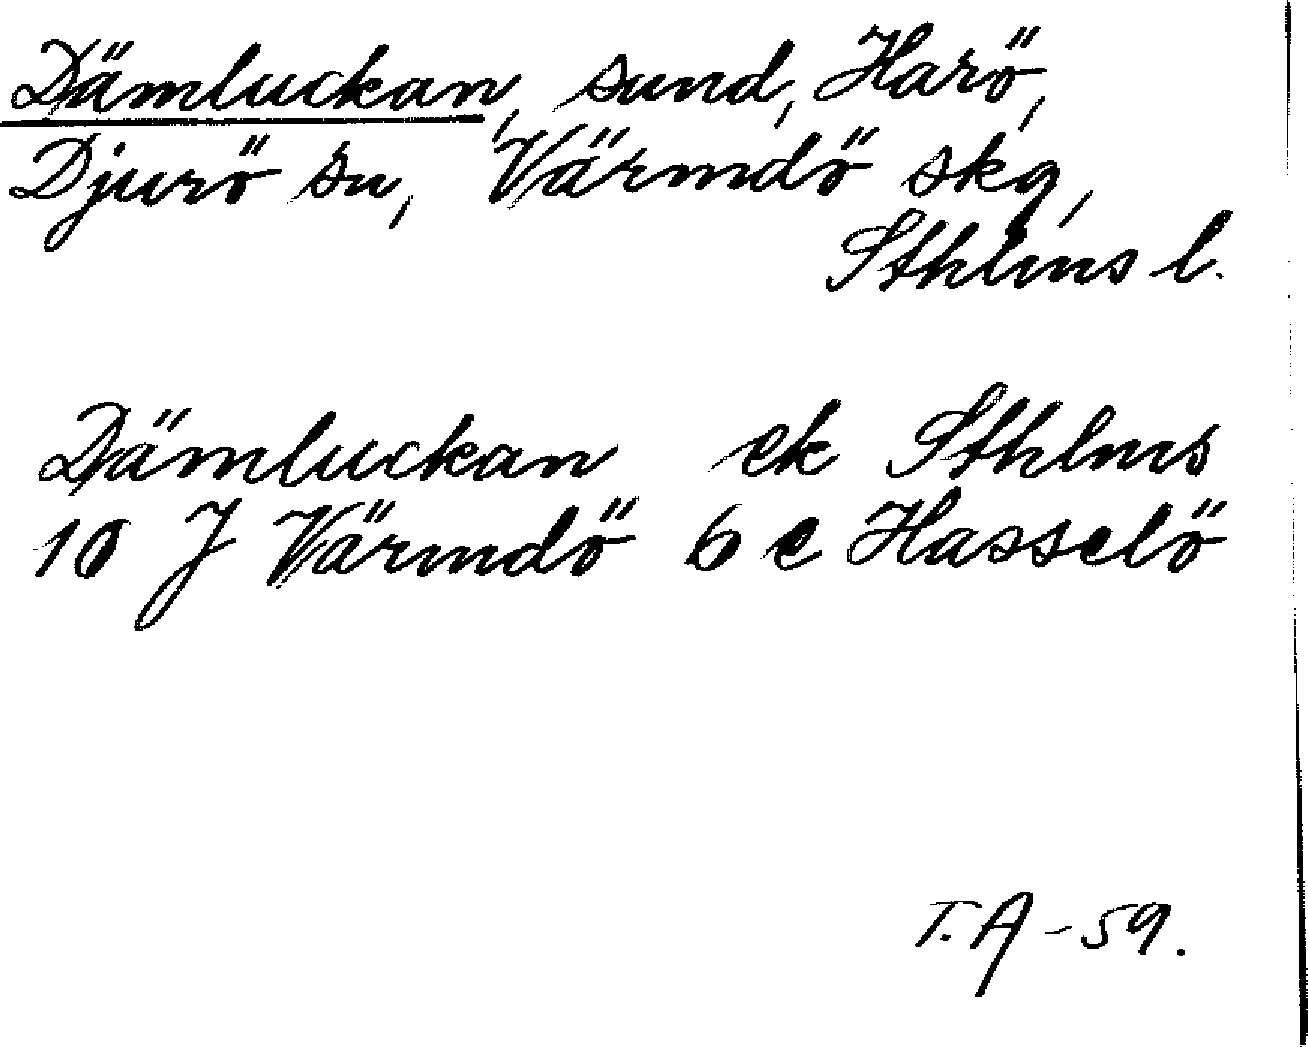 Dämluckan, sund, Harö,
Djurö sn, Värmdö skg,
Sthlms l.
Dämluckan ek Sthlms
10 J Värmdö 6 e Hasselö
T.A -59.